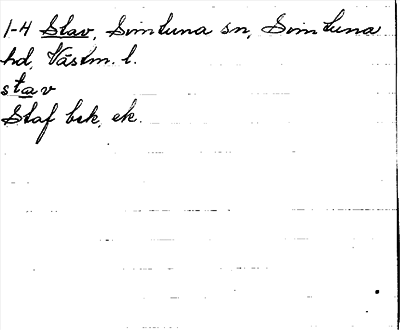 1-4 Stav, Simtuna sn, Simtuna
hd, Västm. l.
stav
Staf bek. ek.